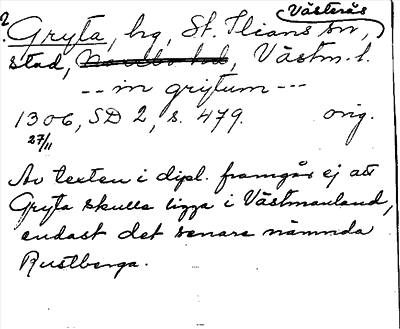 Västerås
2. Gryta, hg, St. Ilians sn,
stad, Västm. l.
-- in grytum ---
1306, SD 2, s. 479. orig.
27/11
Av texten i dipl. framgår ej att
Gryta skulle ligga i Västmanland,
endast det senare nämnda
Rustberga.